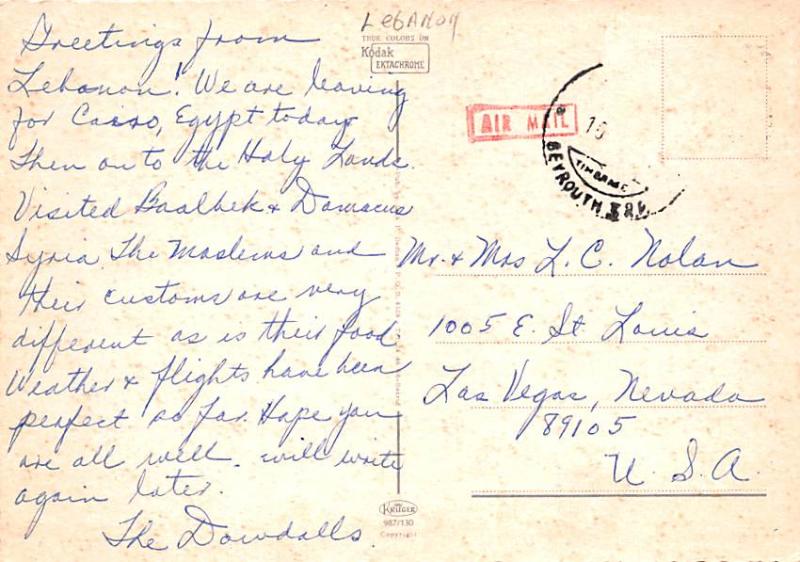 Greetings from
Lebanon! We are leaving
for Cairo, Egypt today
then on to the Holy Lands.
Visited Baalbek & Damacus
Syria. The Moslems and
their customs are very
different as is their food
Weather & flights have been
perfect so far. Hope you
are all well. will write
again later.
The Dowdalls
LEBANON
TRUE COLORS ON
Kodak
EKTACHROME
AIR MAIL
15
TIMBRAGE
BEYROUTH
Mr. & Mrs L. C. Nolan
1005 E. St Louis
Las Vegas, Nevada
89105
U. S. A.
KRÜGER
987/130
Copyright